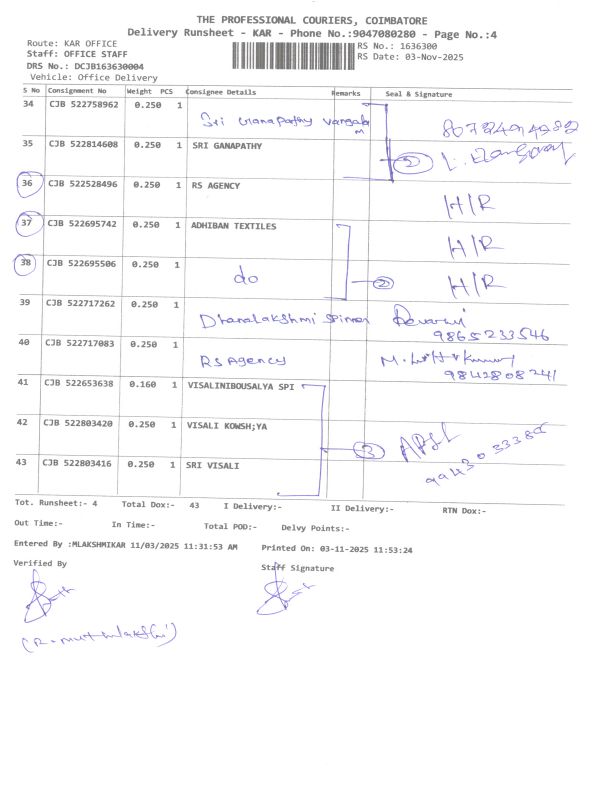 THE PROFESSIONAL COURIERS, COIMBATORE
Delivery Runsheet - KAR - Phone No.:9047080280 - Page No.:4
Route: KAR OFFICE RS No.: 1636300
Staff: OFFICE STAFF RS Date: 03-Nov-2025
DRS No.: DCJB163630004
Vehicle: Office Delivery
S No Consignment No Weight PCS Consignee Details Remarks Seal & Signature
34 CJB 522758962 0.250 1 Sri Ganapathy
35 CJB 522814608 0.250 1 SRI GANAPATHY 2
36 CJB 522528496 0.250 1 RS AGENCY H/R
37 CJB 522695742 0.250 1 ADHIBAN TEXTILES H/R
38 CJB 522695506 0.250 1 do 2 H/R
39 CJB 522717262 0.250 1 Dhanalakshmi Spinner
9865233546
40 CJB 522717083 0.250 1 RS Agency M.
9842808241
41 CJB 522653638 0.160 1 VISALINIBOUSALYA SPI
42 CJB 522803420 0.250 1 VISALI KOWSH;YA 3
43 CJB 522803416 0.250 1 SRI VISALI
Tot. Runsheet:- 4 Total Dox:- 43 I Delivery:- II Delivery:- RTN Dox:-
Out Time:- In Time:- Total POD:- Delvy Points:-
Entered By :MLAKSHMIKAR 11/03/2025 11:31:53 AM Printed On: 03-11-2025 11:53:24
Verified By Staff Signature